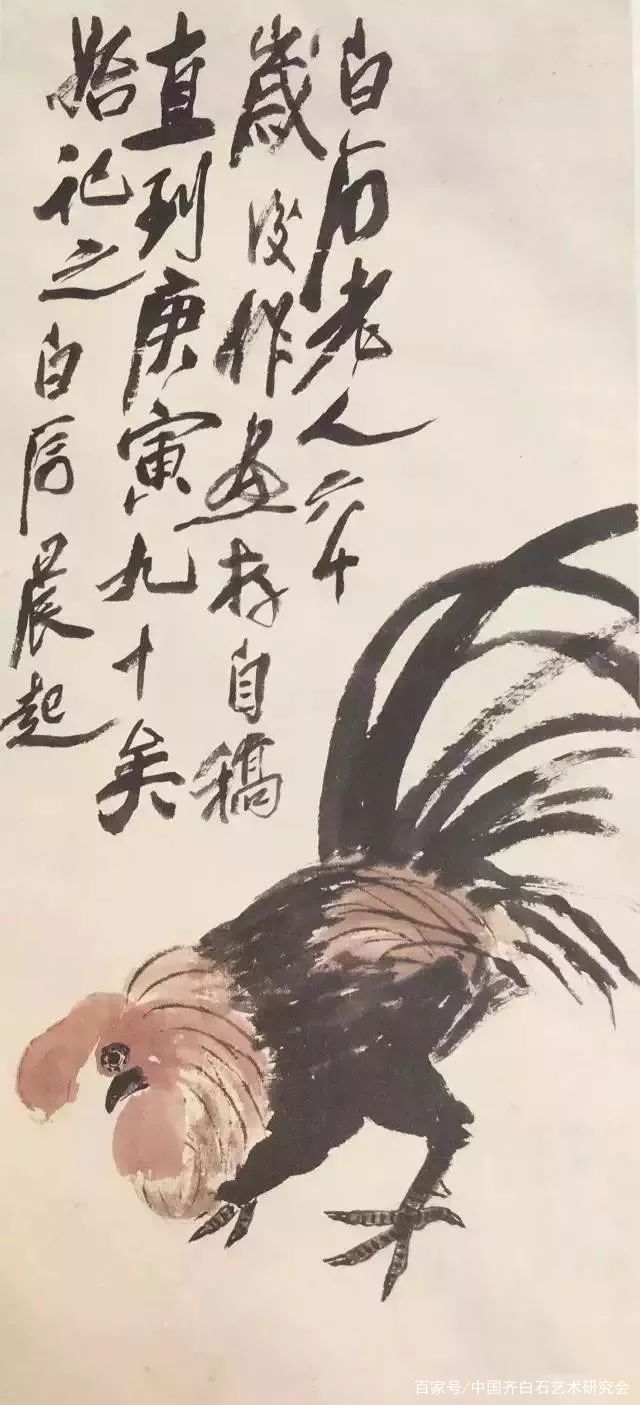 白石老人六十
歲後作畫存自稿
直到庚寅九十矣
始記之白石晨起
百家号/中国齐白石艺术研究会